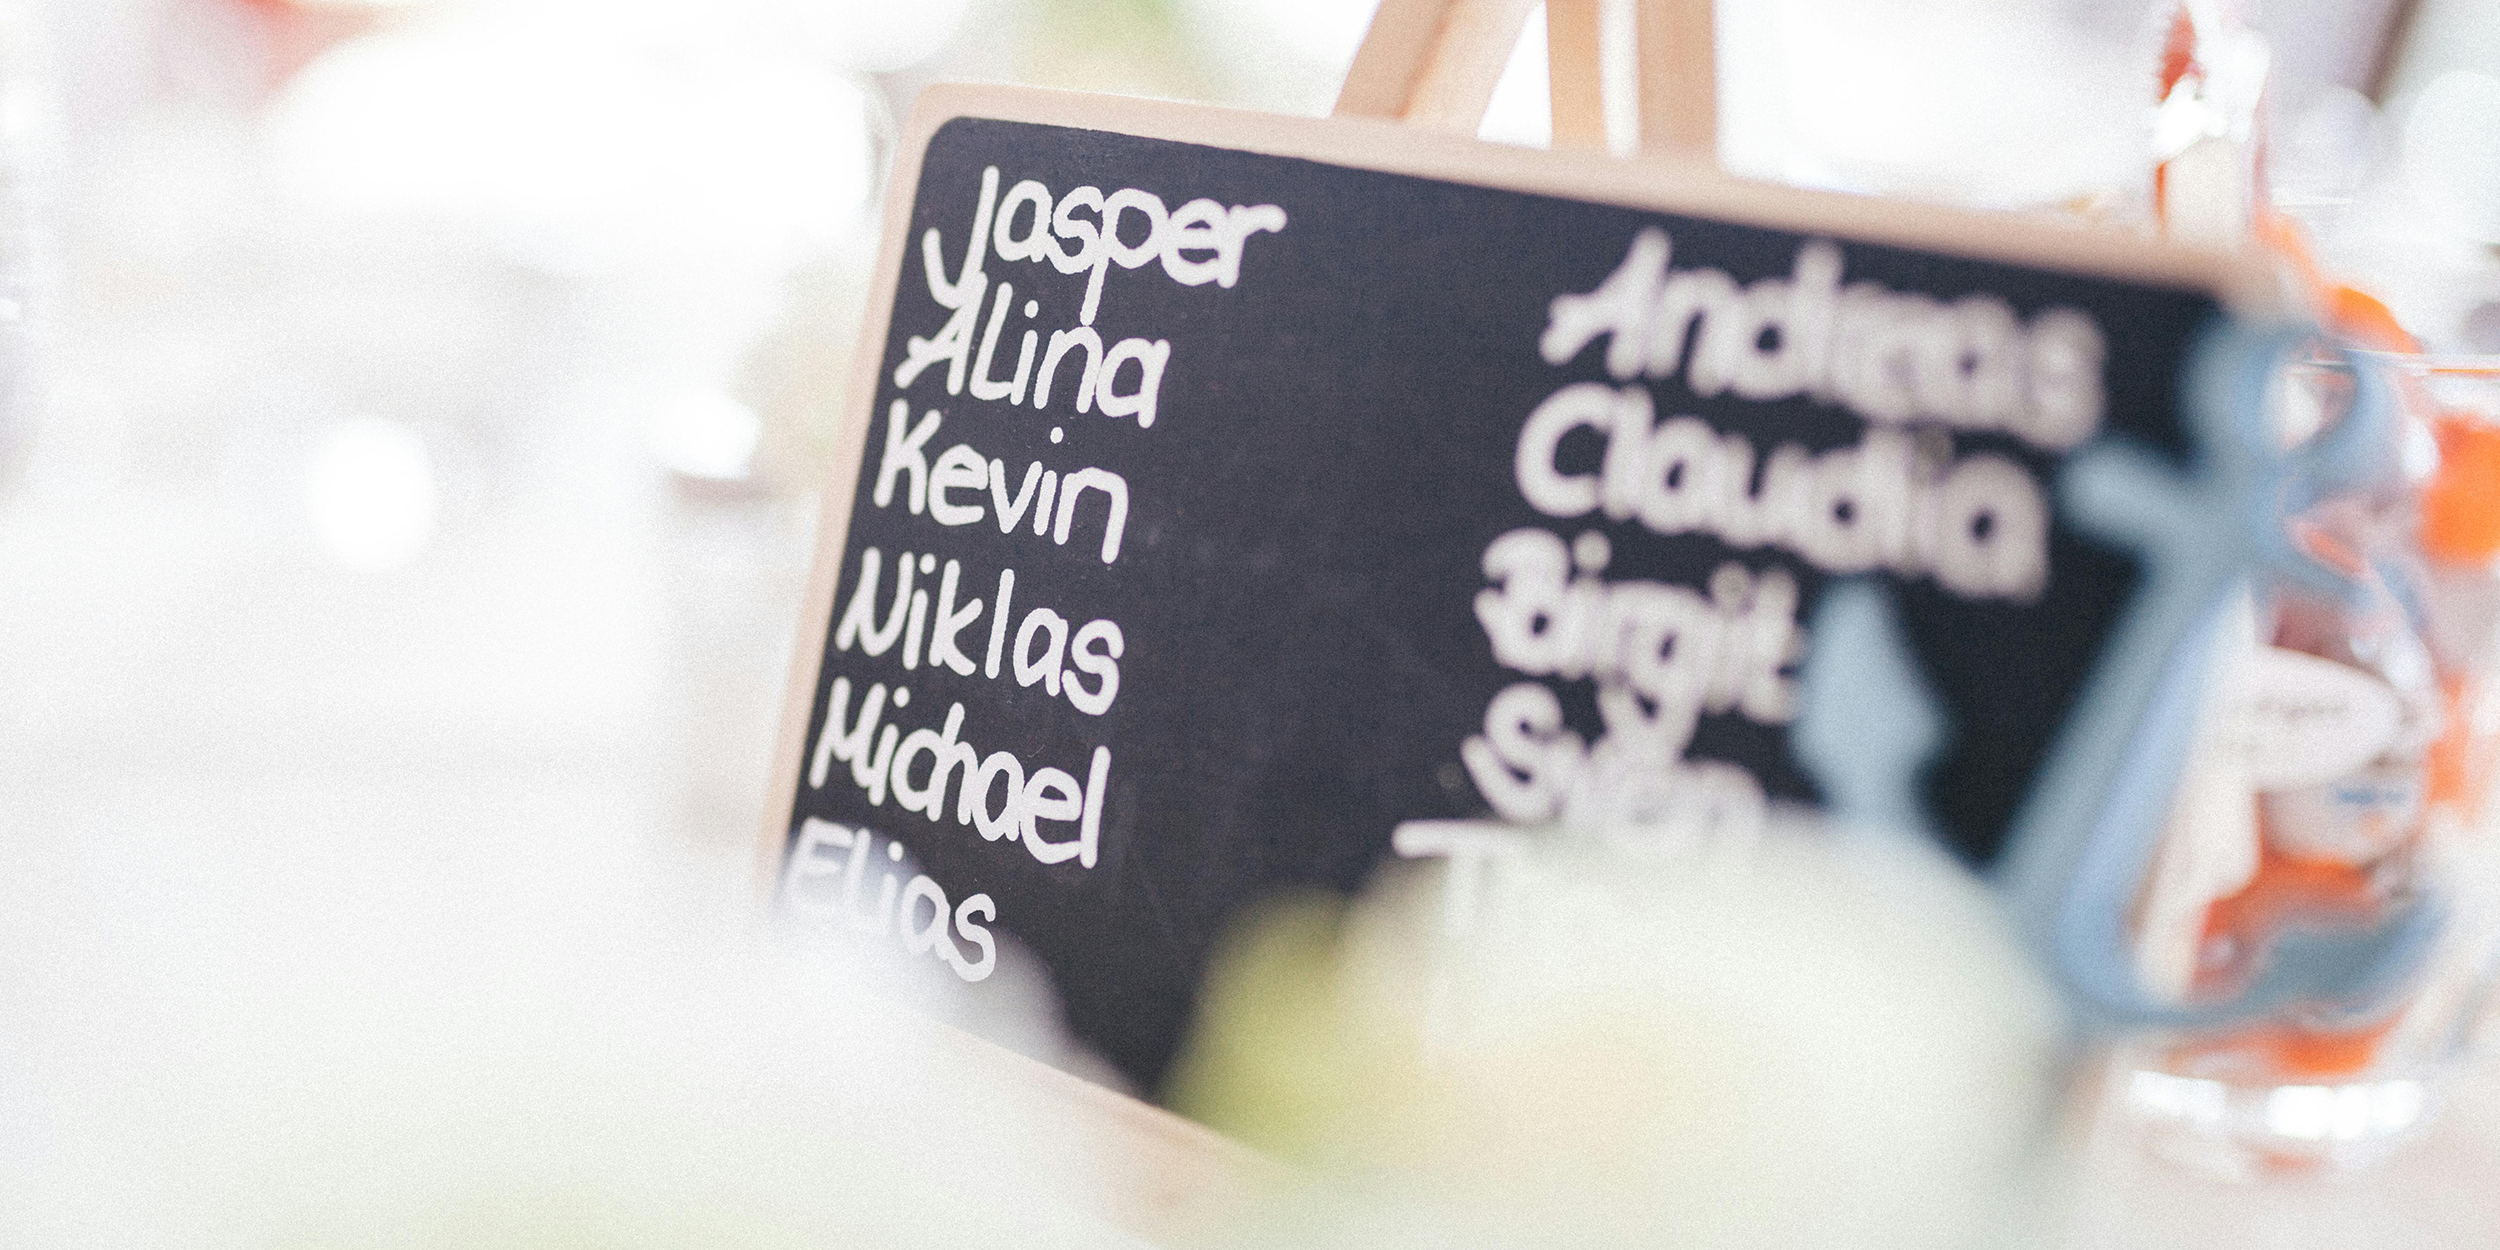 Jasper
Alina
Kevin
Niklas
Michael
Elias
Andreas
Claudia
Birgit